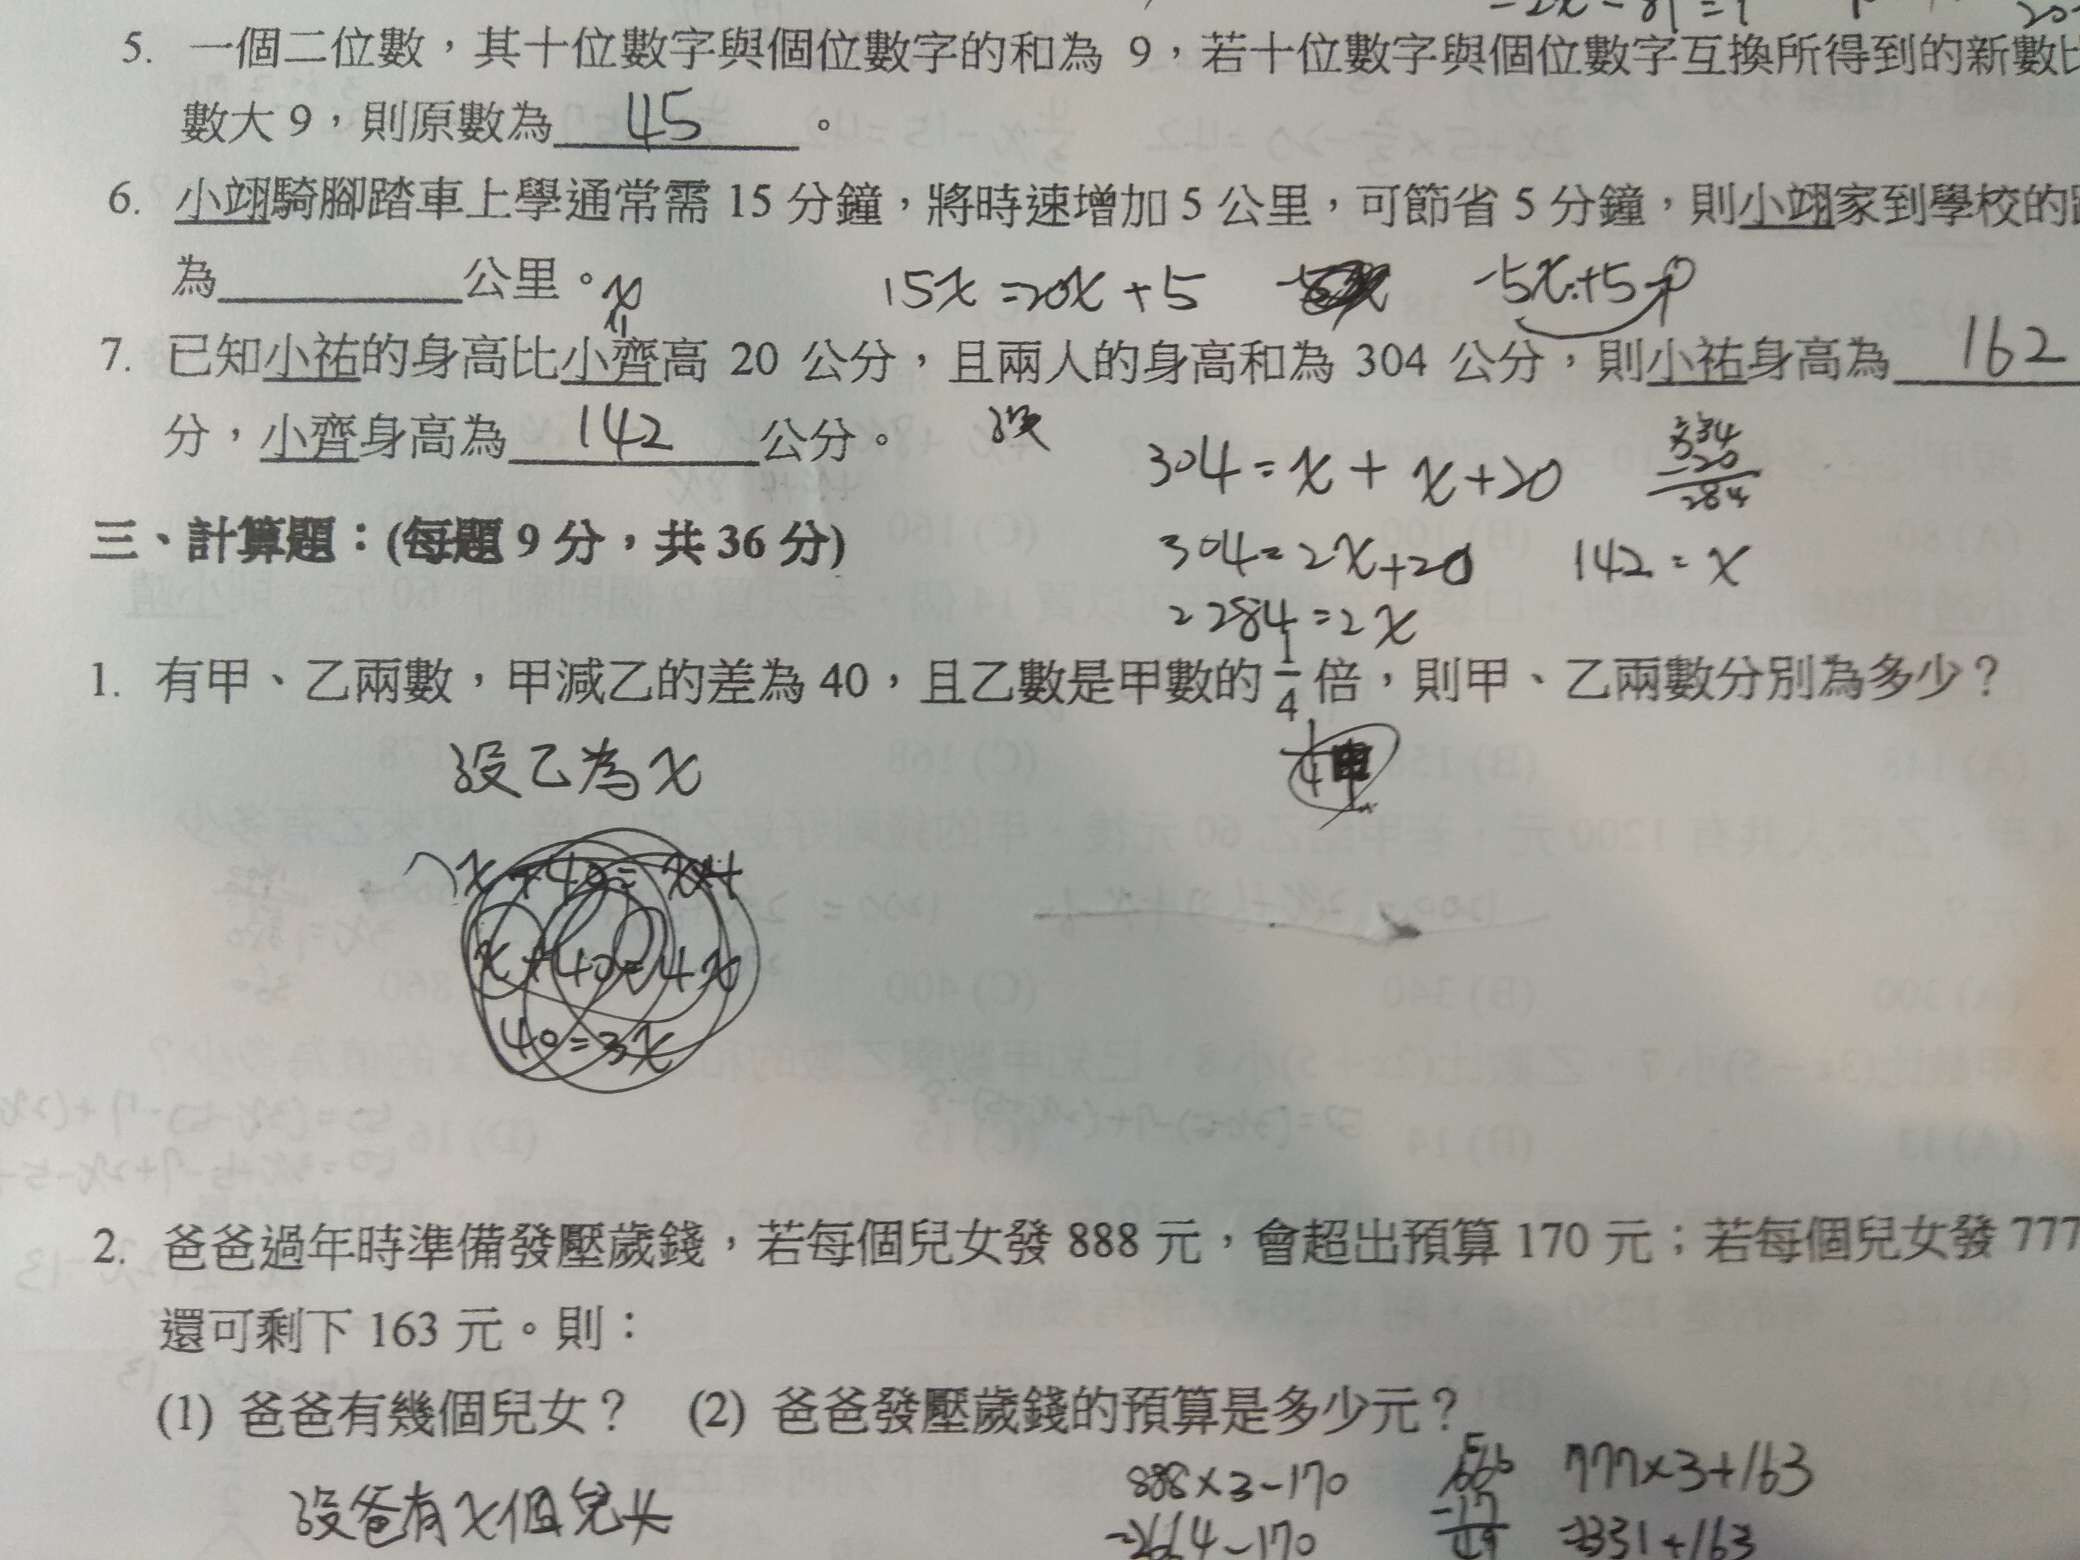 5. 一個二位數，其十位數字與個位數字的和為 9，若十位數字與個位數字互換所得到的新數比
數大 9，則原數為 45 。
6. 小翊騎腳踏車上學通常需 15 分鐘，將時速增加 5 公里，可節省 5 分鐘，則小翊家到學校的
為 公里。 x 15x=20x+5 -5x+5=0
7. 已知小祐的身高比小齊高 20 公分，且兩人的身高和為 304 公分，則小祐身高為 162
分，小齊身高為 142 公分。 設
304=x+x+20
304=2x+20 142=x
284=2x
三、計算題：(每題 9 分，共 36 分)
1. 有甲、乙兩數，甲減乙的差為 40，且乙數是甲數的 1/4 倍，則甲、乙兩數分別為多少？
設乙為x 1/4甲
x+40=4x
40=3x
2. 爸爸過年時準備發壓歲錢，若每個兒女發 888 元，會超出預算 170 元；若每個兒女發 777
還可剩下 163 元。則：
(1) 爸爸有幾個兒女？ (2) 爸爸發壓歲錢的預算是多少元？
設爸有x個兒女 888×3-170 777×3+163
=2664-170 =2331+163